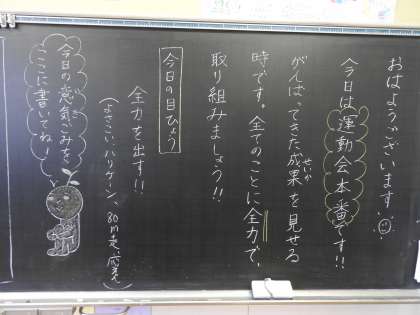 おはようございます
今日は運動会本番です!!
がんばってきた成果を見せる
せいか
時です。全てのことに全力で、
取り組みましょう!!
今日の目ひょう
全力を出す!!
(よさこい、ハリケーン、80m走、応えん)
今日の意気ごみを
ここに書いてね!